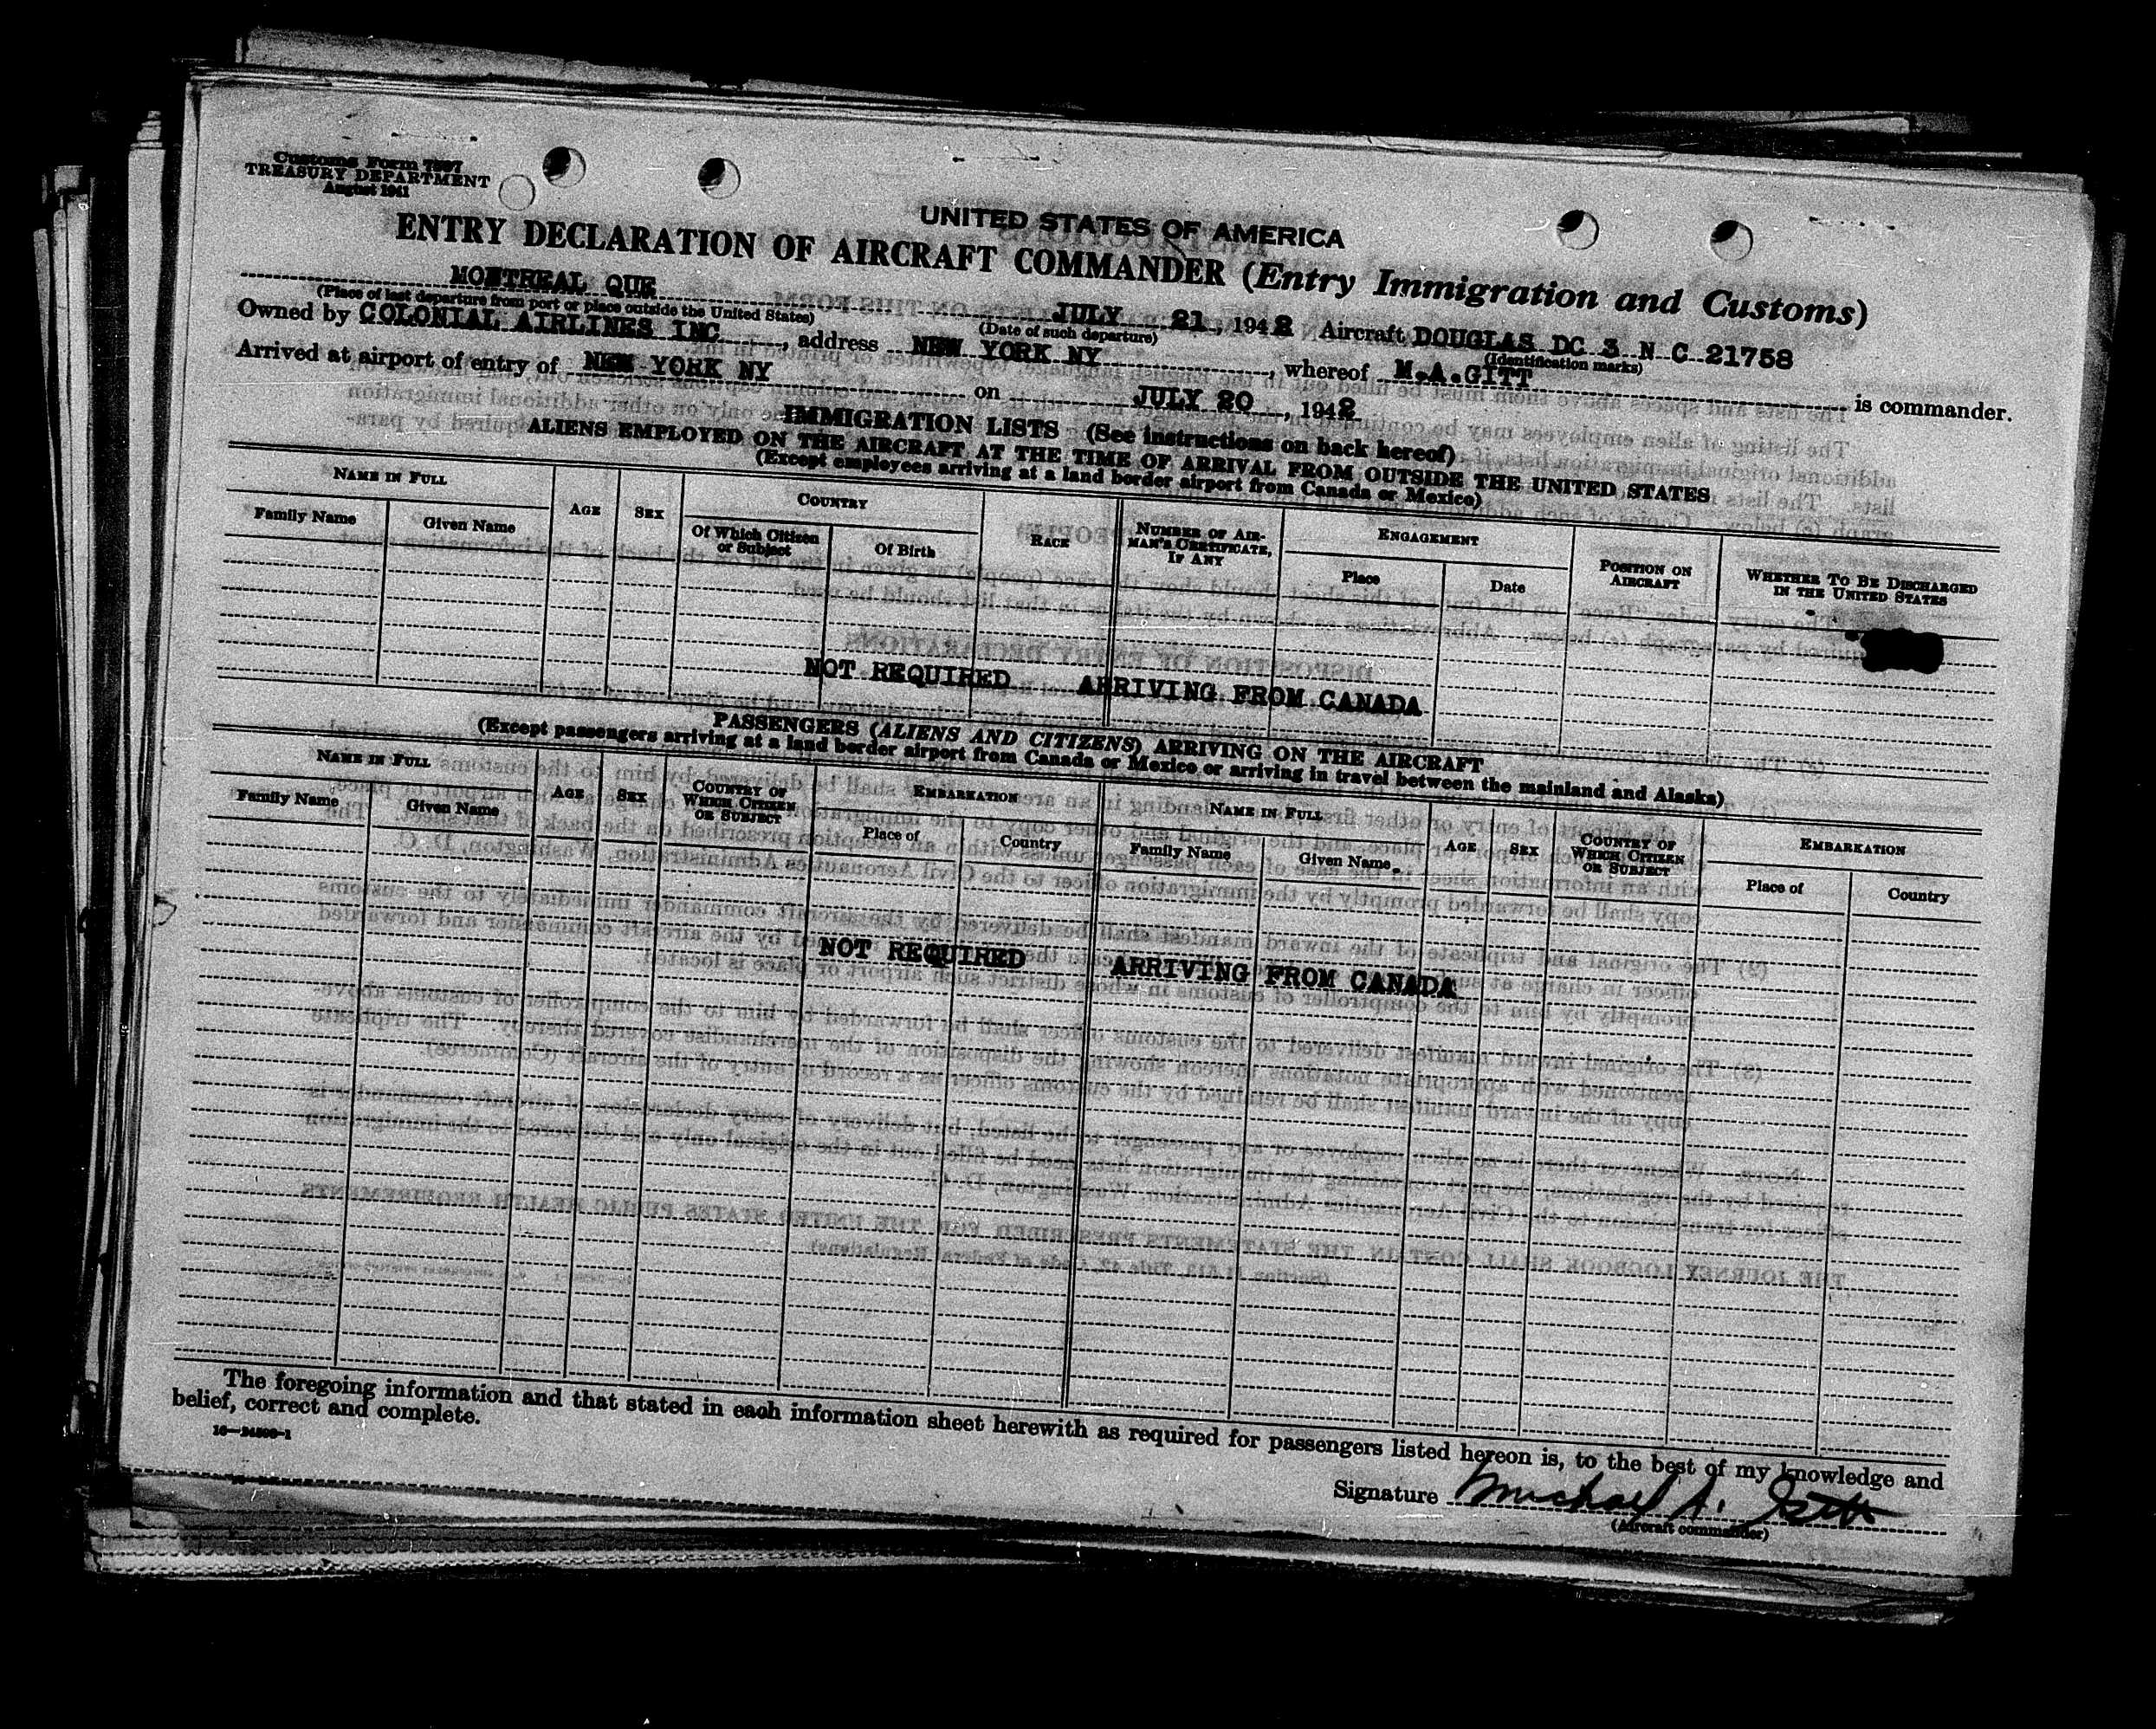 Customs Form 7507
TREASURY DEPARTMENT
August 1941
UNITED STATES OF AMERICA
ENTRY DECLARATION OF AIRCRAFT COMMANDER (Entry Immigration and Customs)
MONTREAL QUE JULY 21, 1942 Aircraft DOUGLAS DC 3 N C 21758
(Place of last departure from port or place outside the United States) (Date of such departure) (Identification marks)
Owned by COLONIAL AIRLINES INC, address NEW YORK NY, whereof M.A.GITT is commander.
Arrived at airport of entry of NEW YORK NY on JULY 20, 1942
IMMIGRATION LISTS (See instructions on back hereof)
ALIENS EMPLOYED ON THE AIRCRAFT AT THE TIME OF ARRIVAL FROM OUTSIDE THE UNITED STATES
(Except employees arriving at a land border airport from Canada or Mexico)
NAME IN FULL AGE SEX COUNTRY RACE NUMBER OF AIRMAN'S CERTIFICATE, IF ANY ENGAGEMENT POSITION ON AIRCRAFT WHETHER TO BE DISCHARGED IN THE UNITED STATES
Family Name Given Name Of Which Citizen or Subject Of Birth Place Date
NOT REQUIRED ARRIVING FROM CANADA
PASSENGERS (ALIENS AND CITIZENS) ARRIVING ON THE AIRCRAFT
(Except passengers arriving at a land border airport from Canada or Mexico or arriving in travel between the mainland and Alaska)
NAME IN FULL AGE SEX COUNTRY OF WHICH CITIZEN OR SUBJECT EMBARKATION NAME IN FULL AGE SEX COUNTRY OF WHICH CITIZEN OR SUBJECT EMBARKATION
Family Name Given Name Place of Country Family Name Given Name Place of Country
NOT REQUIRED ARRIVING FROM CANADA
The foregoing information and that stated in each information sheet herewith as required for passengers listed hereon is, to the best of my knowledge and
belief, correct and complete.
Signature Michael A. Gitt
(Aircraft commander)